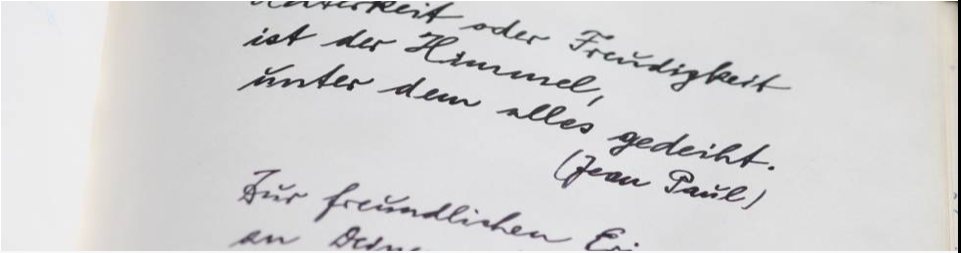 oder Freudigkeit
ist der Himmel,
unter dem alles gedeiht.
(Jean Paul)
Zur freundlichen
an